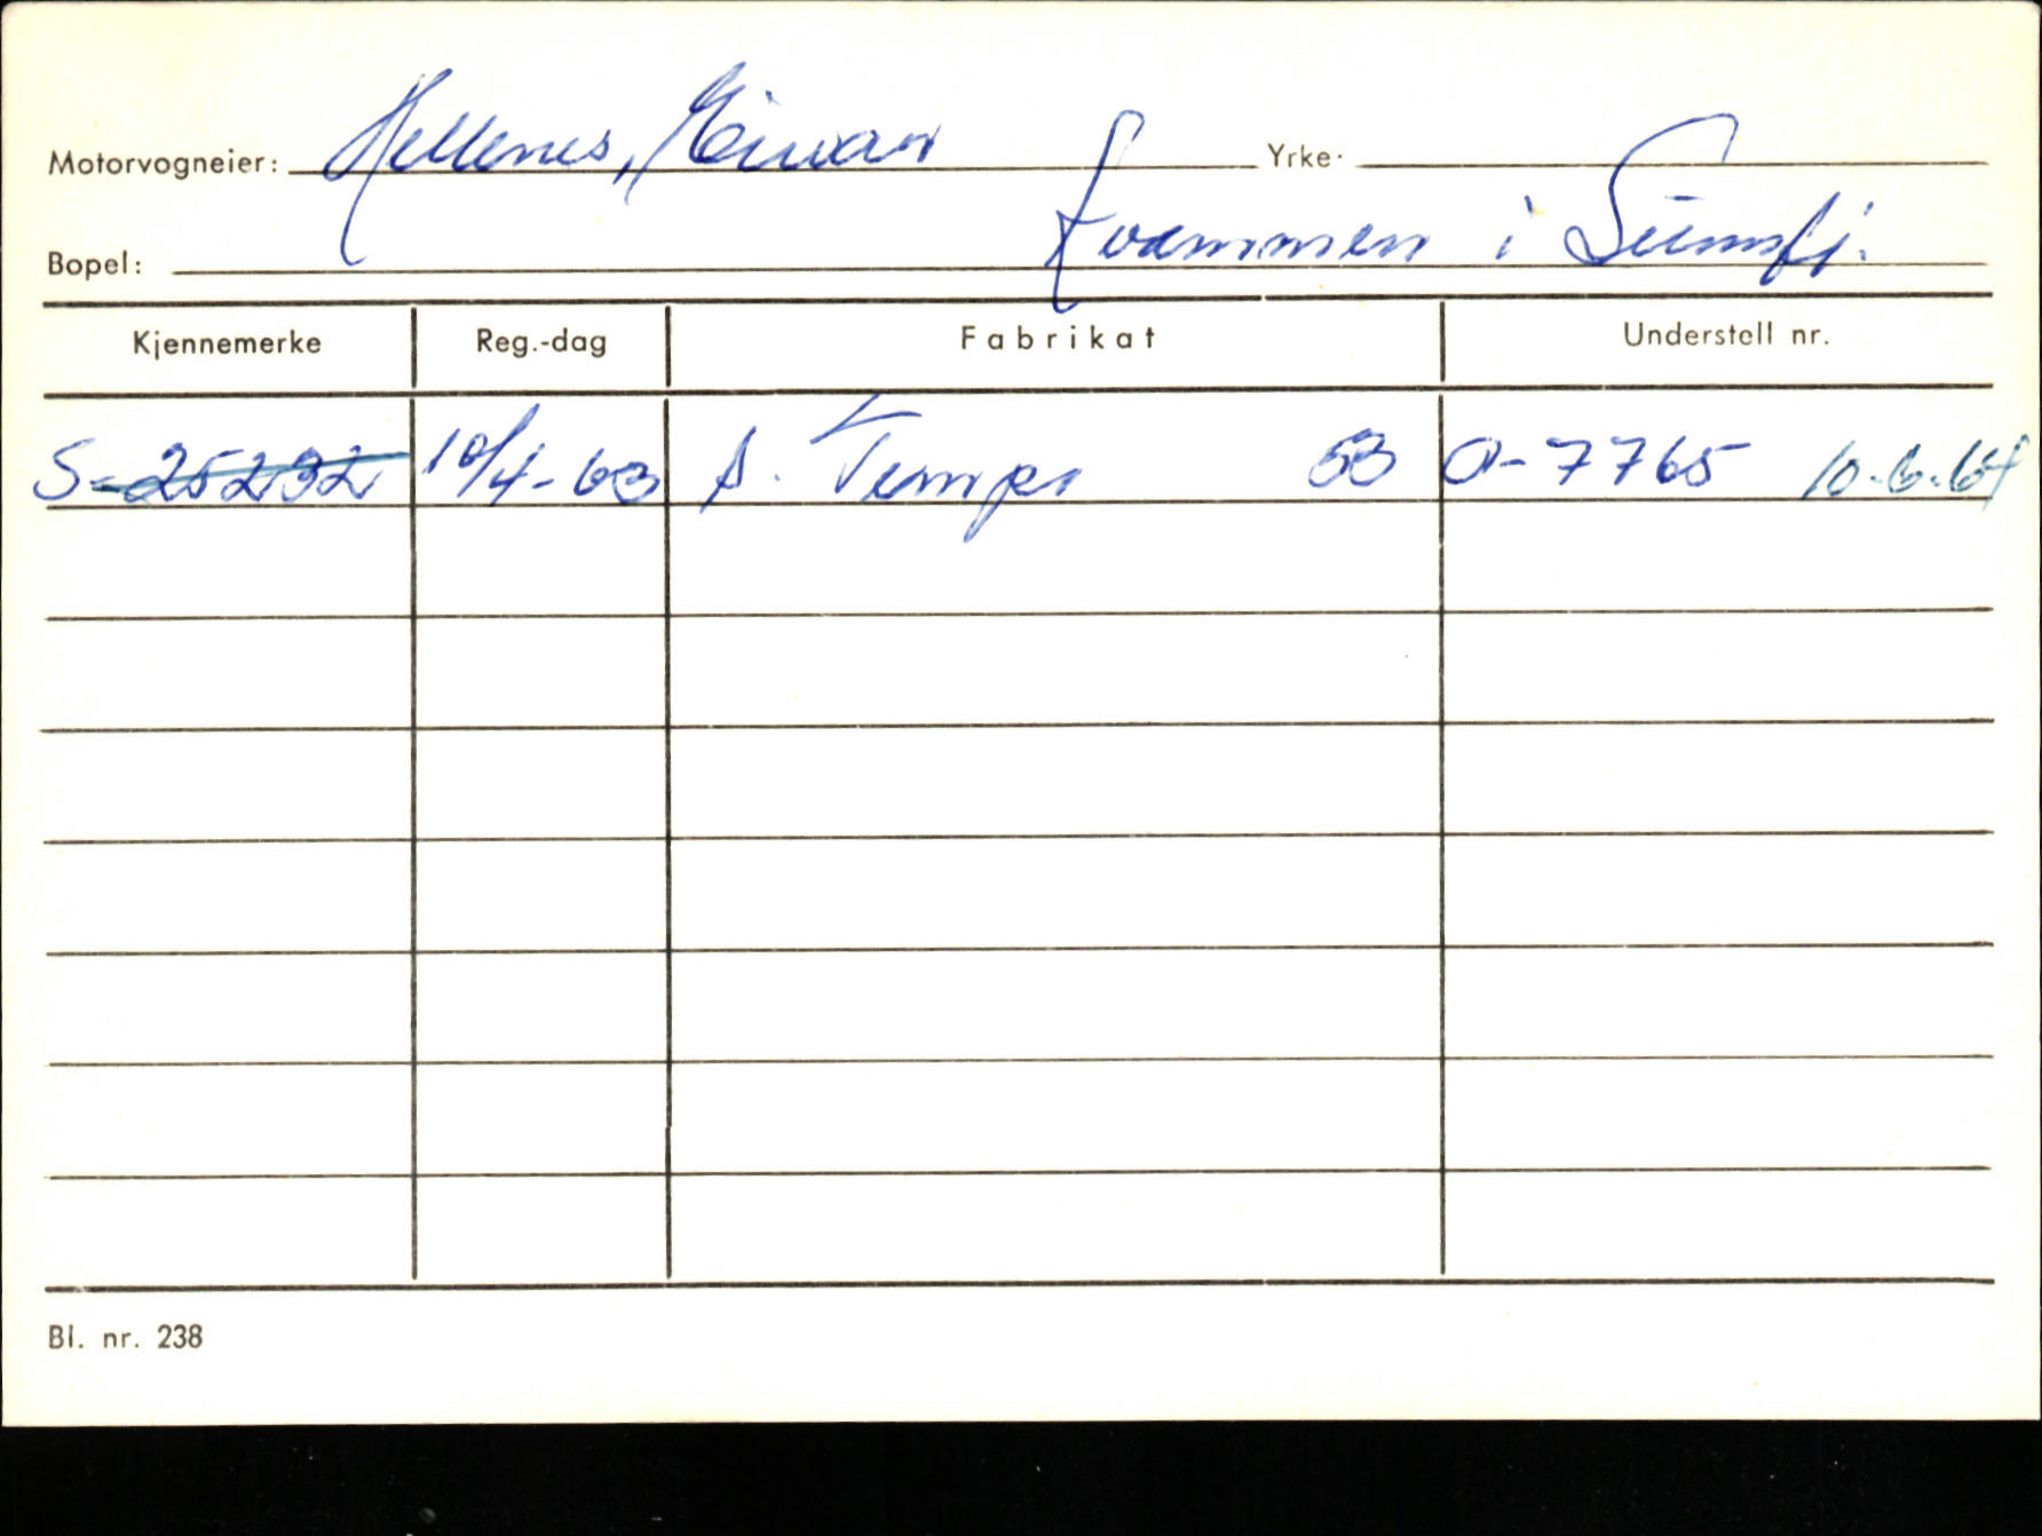 Motorvogneier: Hellenes, Eivar Yrke:
Bopel: Kvammen i Sunnfj.
Kjennemerke Reg.-dag Fabrikat Understell nr.
S-25232 10/4-63 S. Tempo 53 O-7765 10.6.64
Bl. nr. 238